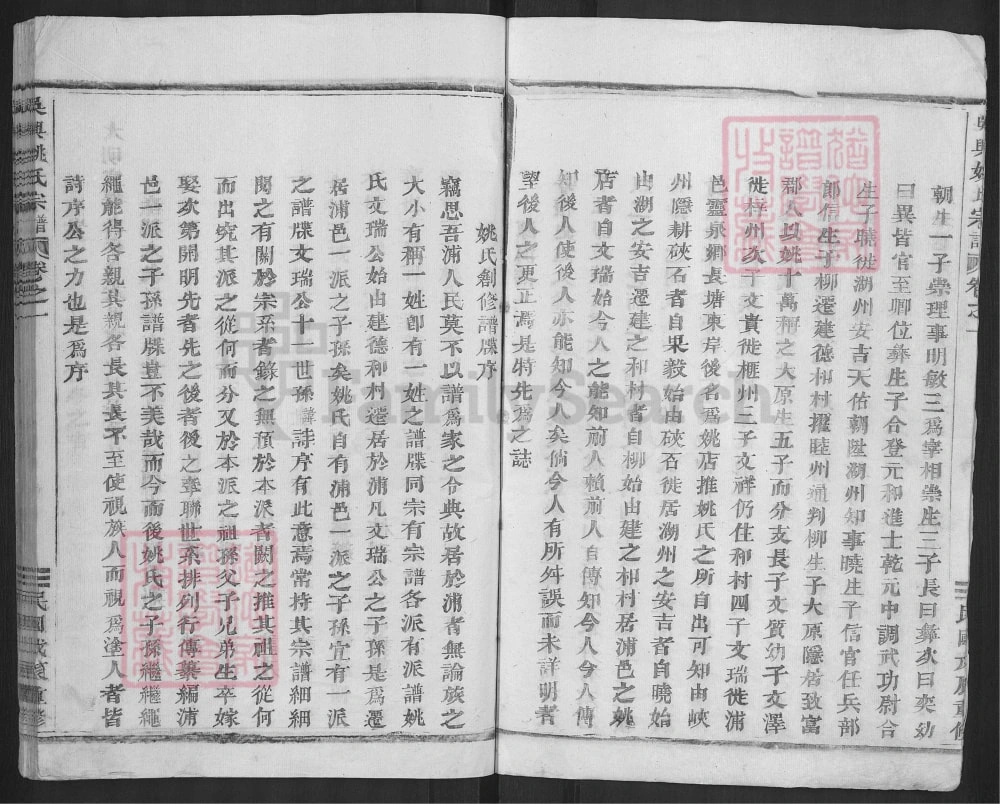 吳興姚氏宗譜 卷之一
民國戊寅重修
朝生一子崇理事明敏三爲宰相崇生三子長曰彝次曰奕幼
曰異皆官至卿位彝生子合登元和進士乾元中調武功尉合
生子曉徙湖州安吉天佑朝陞湖州知事曉生子信官任兵部
郎信生子柳遷建德和村擢睦州通判柳生子大原隱居致富
郡人以姚十萬稱之大原生五子而分支長子文質幼子文澤
徙梓州次子文貴徙榧州三子文祥仍住和村四子文瑞徙浦
邑靈泉鄉長塘東岸後名爲姚店推姚氏之所自出可知由峽
州隱耕硤石者自果毅始由硤石徙居湖州之安吉者自曉始
由湖之安吉遷建之和村者自柳始由建之和村居浦邑之姚
店者自文瑞始今人之能知前人賴前人自傳知今人今人傳
知後人使後人亦能知今人矣倘今人有所舛誤而未詳明者
望後人之更正焉是特先爲之誌
姚氏創修譜牒序
竊思吾浦人民莫不以譜爲家之令典故居於浦者無論族之
大小有稱一姓卽有一姓之譜牒同宗有宗譜各派有派譜姚
氏文瑞公始由建德和村遷居於浦凡文瑞公之子孫是爲遷
居浦邑一派之子孫矣姚氏自有浦邑一派之子孫宜有一派
之譜牒文瑞公十一世孫譜詩序有此意焉常持其宗譜細細
閱之有關於宗系者錄之無預於本派者闕之推其祖之從何
而出究其派之從何而分又於本派之祖孫父子兄弟生卒嫁
娶次第開明先者先之後者後之牽聯世系排列行傳彙編浦
邑一派之子孫譜牒豈不美哉而今而後姚氏之子孫繼繼繩
繩能得各親其親各長其長不至使視族人而視爲塗人者皆
詩序公之力也是爲序
吳興姚氏宗譜 卷之一
民國戊寅重修
FamilySearch